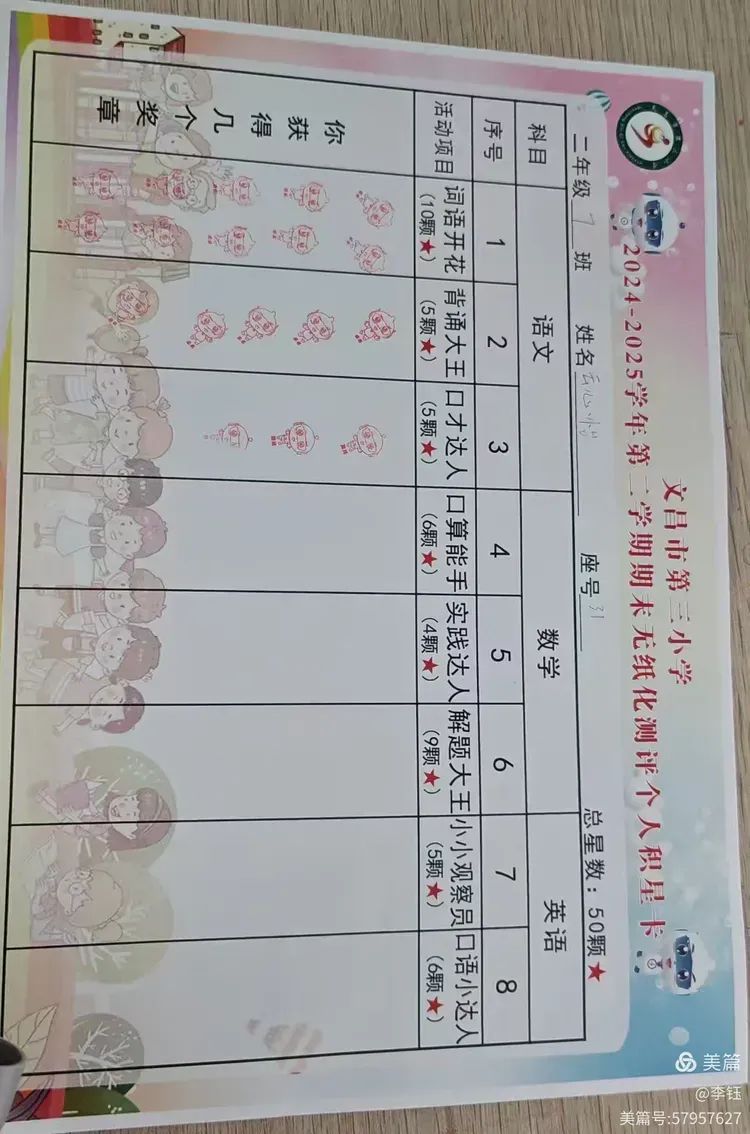 文昌市第三小学
2024-2025学年第二学期期末无纸化测评个人积星卡
二年级 7 班 姓名 座号 31 总星数：50颗★
科目 语文 数学 英语
序号 1 2 3 4 5 6 7 8
活动项目 词语开花(10颗★) 背诵大王(5颗★) 口才达人(5颗★) 口算能手(6颗★) 实践达人(4颗★) 解题大王(9颗★) 小小观察员(5颗★) 口语小达人(6颗★)
你获得几个奖章
美篇
@李钰
美篇号:57957627